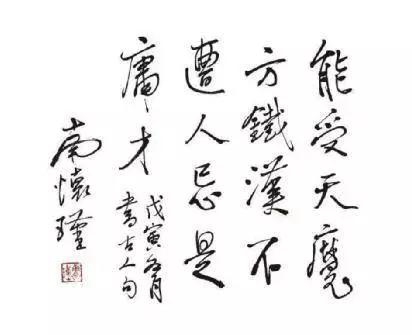 能受天魔
方鐵漢不
遭人忌是
庸才
戊寅月
書古人句
南懷瑾